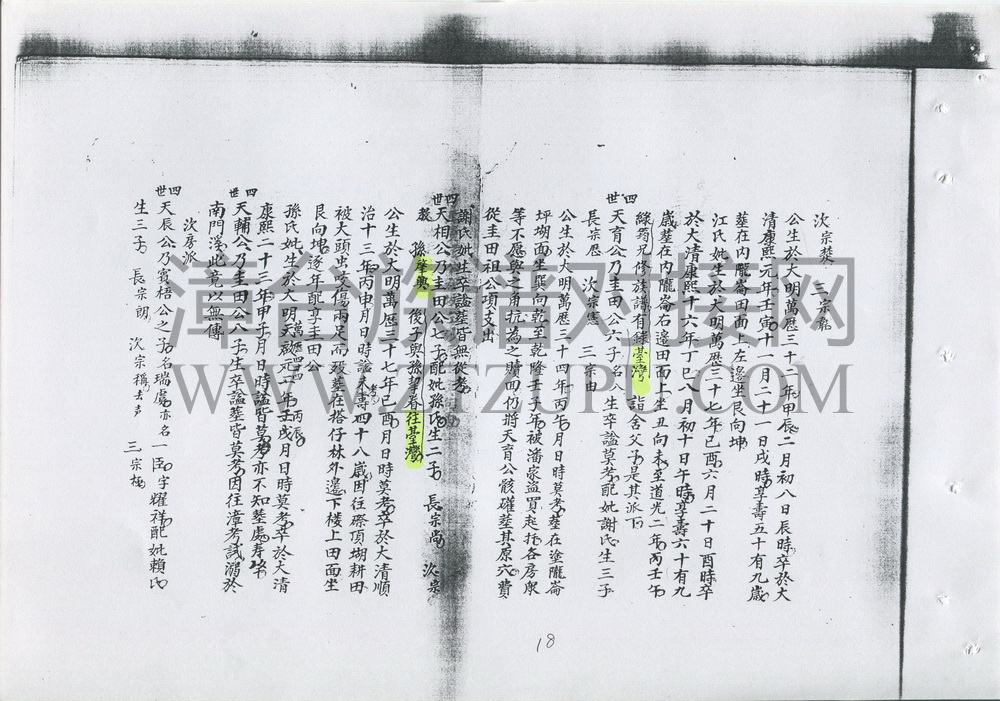 次宗棼　三宗彰
公生於大明萬歷三十二年甲辰二月初八日辰時卒於大
清康熙元年壬寅十一月二十一日戌時享壽五十有九歲
塟在內隴崙田面上左邊坐艮向坤
江氏妣生於大明萬歷三十七年己酉六月二十日酉時卒
於大清康熙十六年丁巳八月初十日午時享壽六十有九
歲塟在內隴崙右邊田面上坐丑向未至道光二年丙壬午
續筠兄修族譜有錄臺灣　詣舍父子是其派下
四世天育公乃圭田公六子名八生卒諡莫考配妣謝氏生三子
長宗恩　次宗憲　三宗由
公生於大明萬歷三十四年丙午月日時莫考塟在塗隴崙
坪坳面坐巽向乾至乾隆壬子年被潘家盜買起托各房眾
等不愿與之角抗為之贖回仍將天育公骸確塟其原穴費
從圭田祖公項支出
謝氏妣生卒諡塟皆無從考
四世天相公乃圭田公七子配妣孫氏生二子　長宗尚　次宗
　孫肇興　後子與孫挈眷往臺灣
公生於大明萬歷三十七年己酉月日時莫考卒於大清順
治十三年丙申月日時諡未考壽四十八歲因往磜頂坳耕田
被大頭虫咬傷兩足而歿塟在塔仔林外邊下樓上田面坐
艮向坤逐年配享圭田公
孫氏妣生於大明天啟元二年壬戌月日時莫考卒於大清
萬歷四四　丙辰
康熙二十三年甲子月日時諡皆莫考亦不知塟處寿坟
四世天輔公乃圭田公八子生卒諡塟皆莫考因往漳考試溺於
南門溪此竟以無傳
次房派
四世天辰公乃賓梧公之子名瑞處亦名一臣字耀祥配妣賴氏
生三子　長宗朗　次宗稱去多　三宗極
18
漳台族谱对接网
WWW.ZTZUPU.COM